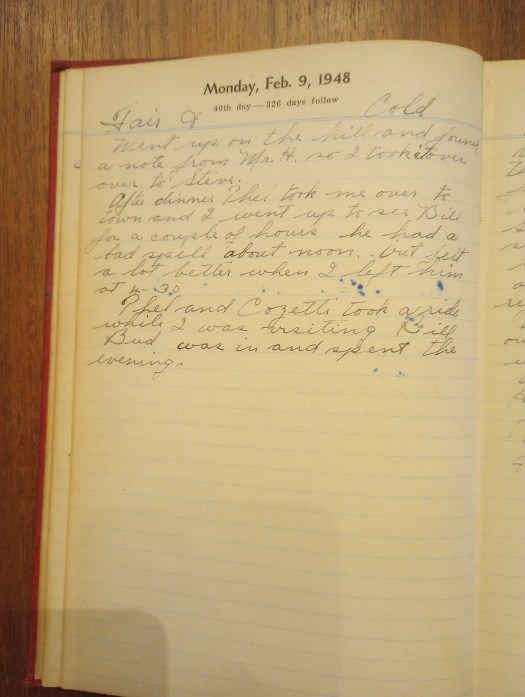 Monday, Feb. 9, 1948
40th day — 326 days follow
Fair & Cold
Went up on the hill and found
a note from Mr. H. so I took it over
over to Steve.
After dinner Phet took me over to
town and I went up to see Bill
for a couple of hours he had a
bad spell about noon. but felt
a lot better when I left him
at 4-30
Phet and Cozette took a ride
while I was visiting Bill
Bud was in and spent the
evening.